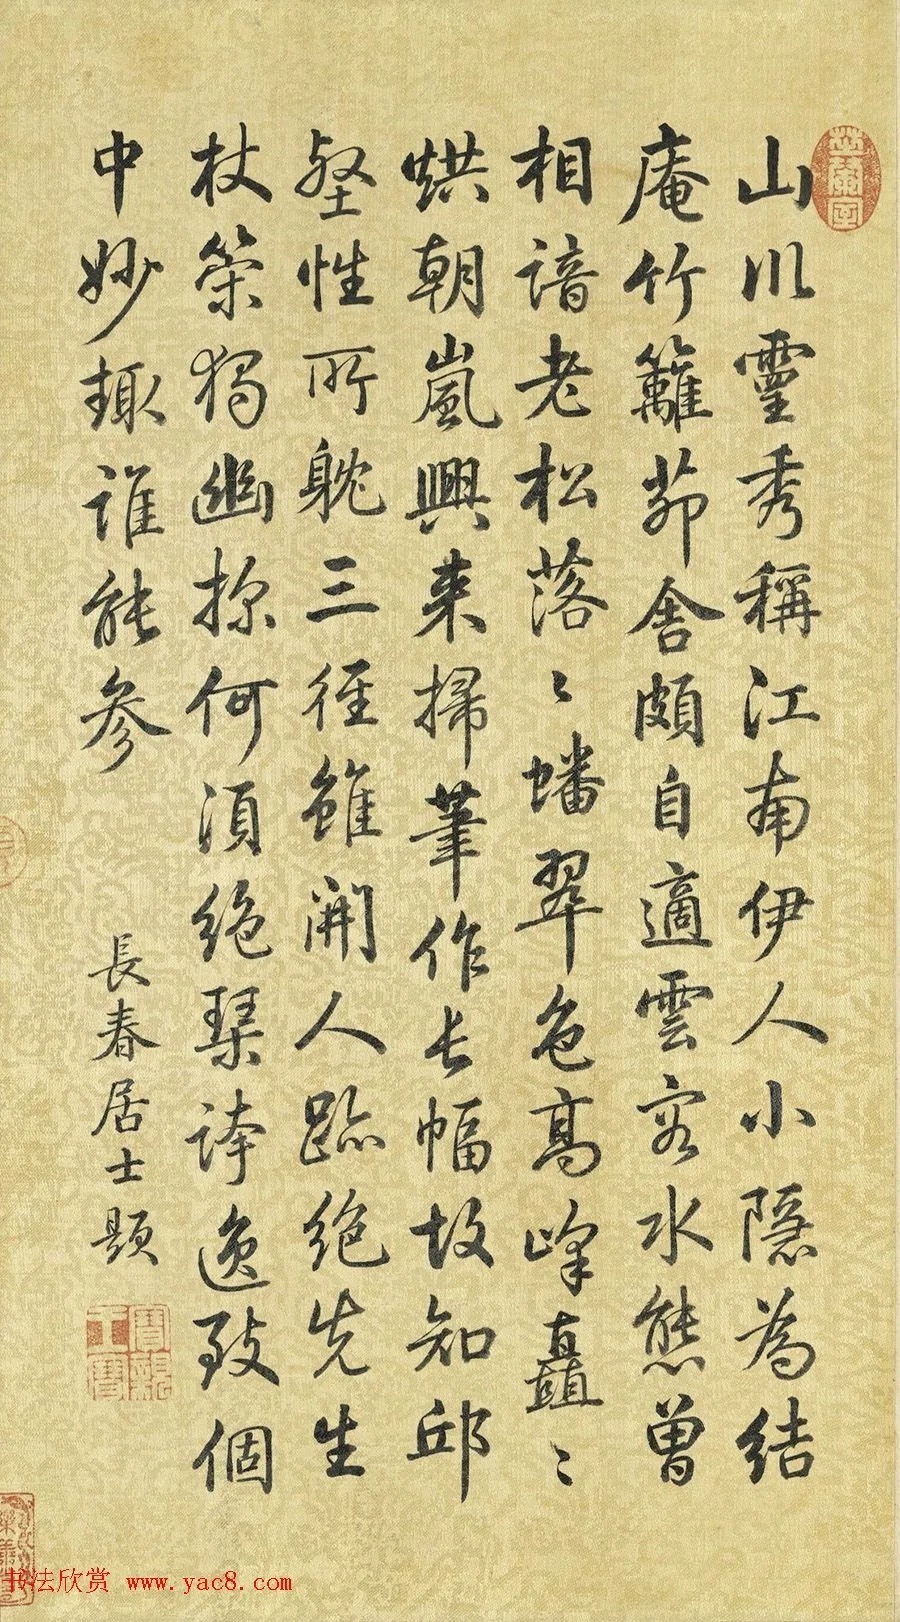 山川靈秀稱江南伊人小隱為結
庵竹籬茆舍頗自適雲容水態曾
相諳老松落〻蟠翠色高峰矗〻
烘朝嵐興來掃筆作長幅故知邱
壑性所躭三徑雖開人跡絕先生
杖策獨幽探何須絕琹誇逸致個
中妙趣誰能參
長春居士題
寶親王寶
书法欣赏 www.yac8.com